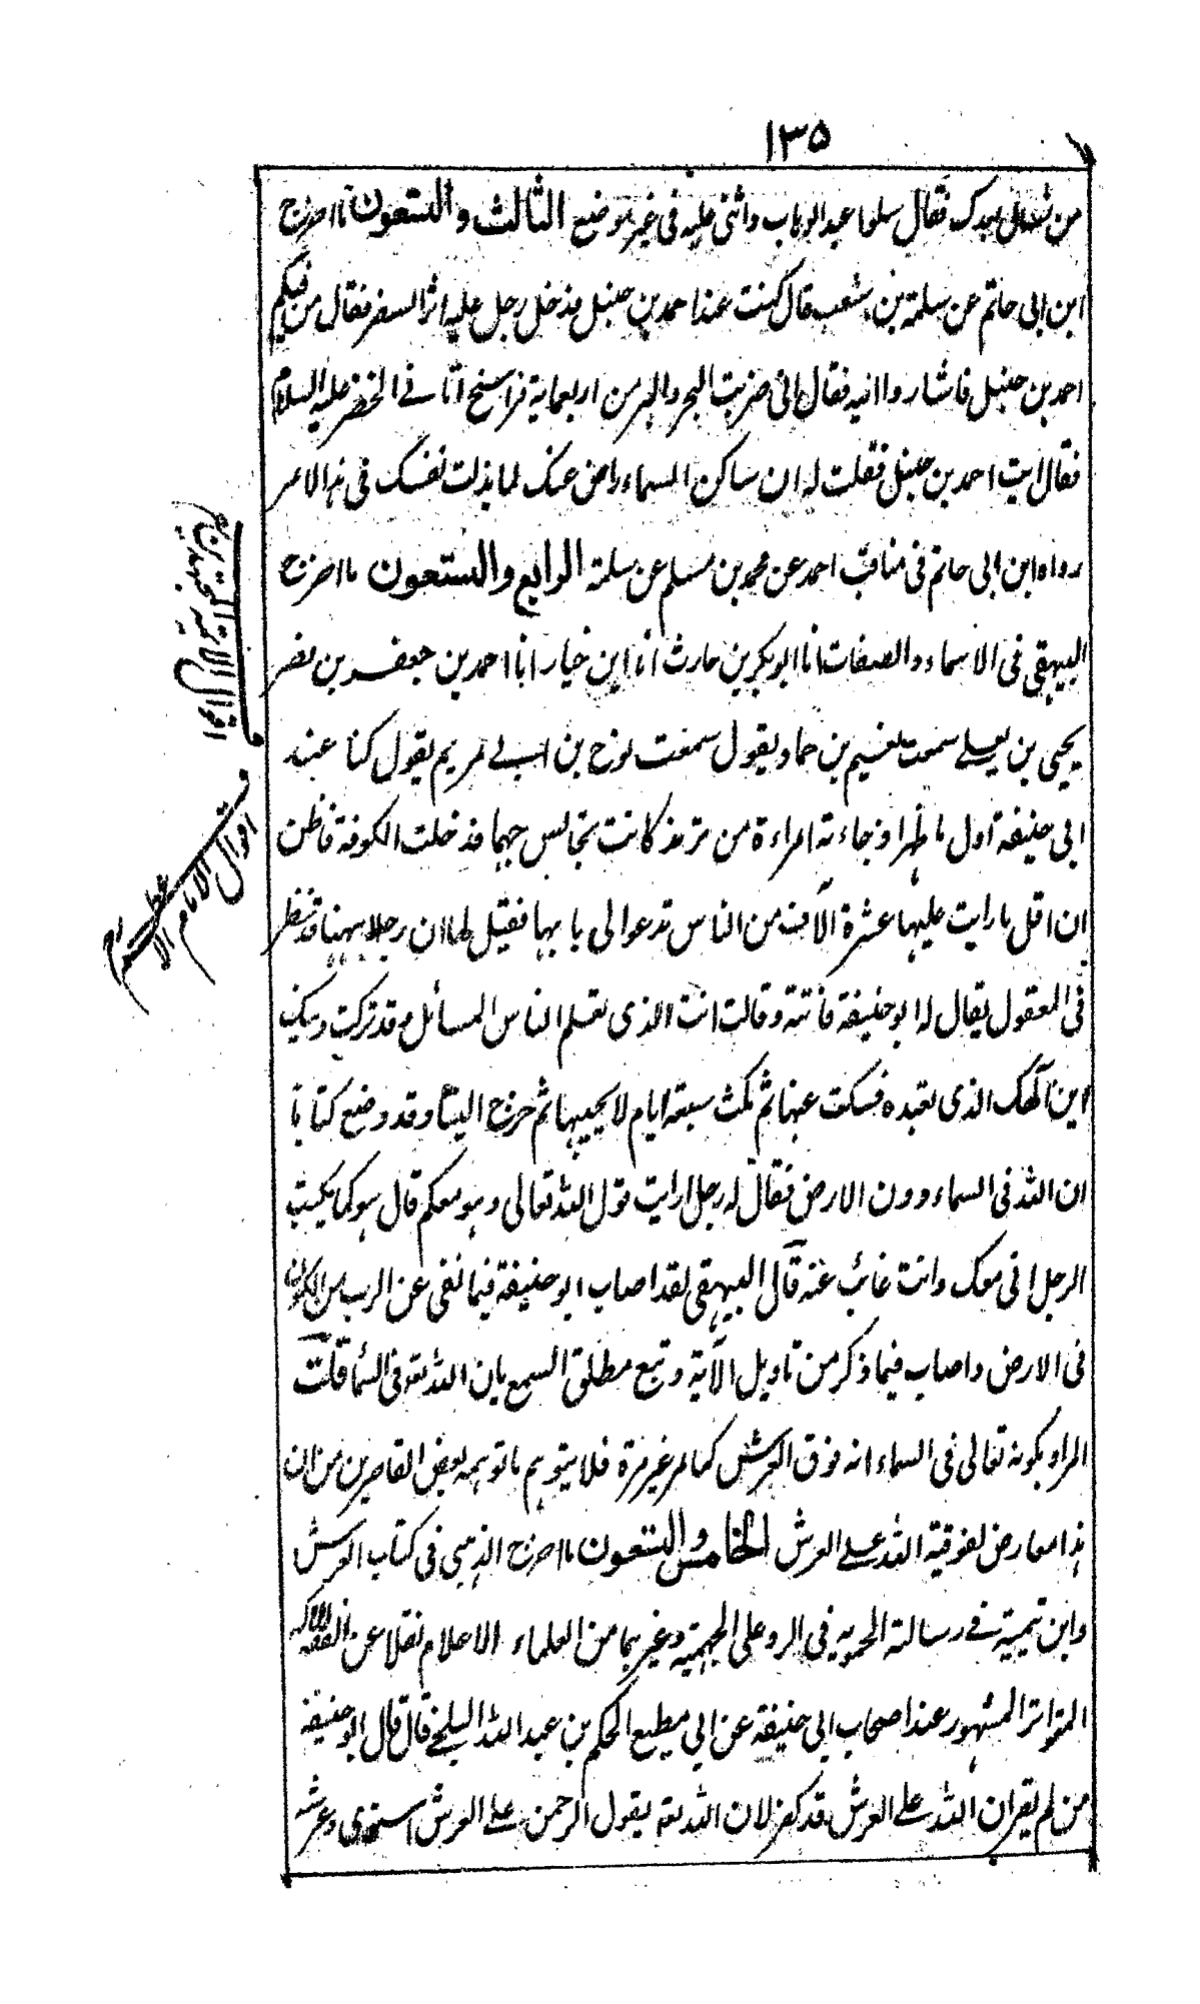 ١٣٥
من نسأل بعدك فقال سلوا عبد الوهاب واثنى عليه فى غير موضع الثالث والستعون ما اخرج
ابن ابى حاتم عن سلمة بن شعيب قال كنت عند احمد بن حنبل فدخل رجل عليه اثر السفر فقال من فيكم
احمد بن حنبل فاشاروا اليه فقال انى ضربت البحر والبر من اربعماية فراسخ اتانے الخضر عليه السلام
فقال ايت احمد بن حنبل فقلت له ان ساكن السماء راض عنك لما بذلت نفسك فى هذا الامر
رواه ابن ابى حاتم فى مناقب احمد عن محمد بن مسلم عن سلمة الرابع والستعون ما اخرج
البيهقى فى الاسماء والصفات انا ابو بكر بن حارث انا ابن خيار انا احمد بن جعفر بن نصر
يحيى بن يعلے سمعت نعيم بن حماد يقول سمعت نوح بن ابے مريم يقول كنا عند
ابى حنيفة اول ما ظهر اذ جاءته امراءة من ترمذ كانت تجالس جهما فدخلت الكوفة فاظن
ان اقل ما رايت عليها عشرة آلاف من الناس تدعو الى بابها فقيل لها ان رجلا ههنا قد نظر
فى المعقول يقال له ابو حنيفة فاتته وقالت انت الذى تعلم الناس المسائل وقد تركت دينك
اين آلهك الذى تعبده فسكت عنها ثم مكث سبعة ايام لا يجيبها ثم خرج الينا وقد وضع كتابا
ان الله فى السماء دون الارض فقال له رجل ارايت قول الله تعالى وهو معكم قال هو كما يكتب
الرجل انى معك وانت غائب عنه قال البيهقى لقد اصاب ابو حنيفة فيما نفى عن الرب من الكون
فى الارض واصاب فيما ذكر من تاويل الآية وتبع مطلق السمع بان الله تعہ فى السماء قلت
المراد بكونه تعالى فى السماء انه فوق العرش كما مر غير مرة فلا يتوهم ما توهمه بعض القاصرين من ان
هذا معارض لفوقية الله علے العرش الخامس والستعون ما اخرج الذهبى فى كتاب العرش
وابن تيمية فے رسالته الحموية فى الرد على الجهمية وغيرهما من العلماء الاعلام نقلا عن الفقه الاكبر
المتواتر المشهور عند اصحاب ابى حنيفة عن ابى مطيع الحكم بن عبد الله البلخے قال قال ابو حنيفة
من لم يقر ان الله علے العرش قد كفر لان الله تعہ يقول الرحمن علے العرش استوى وعرشه
اقوال الامام الاعظم رح